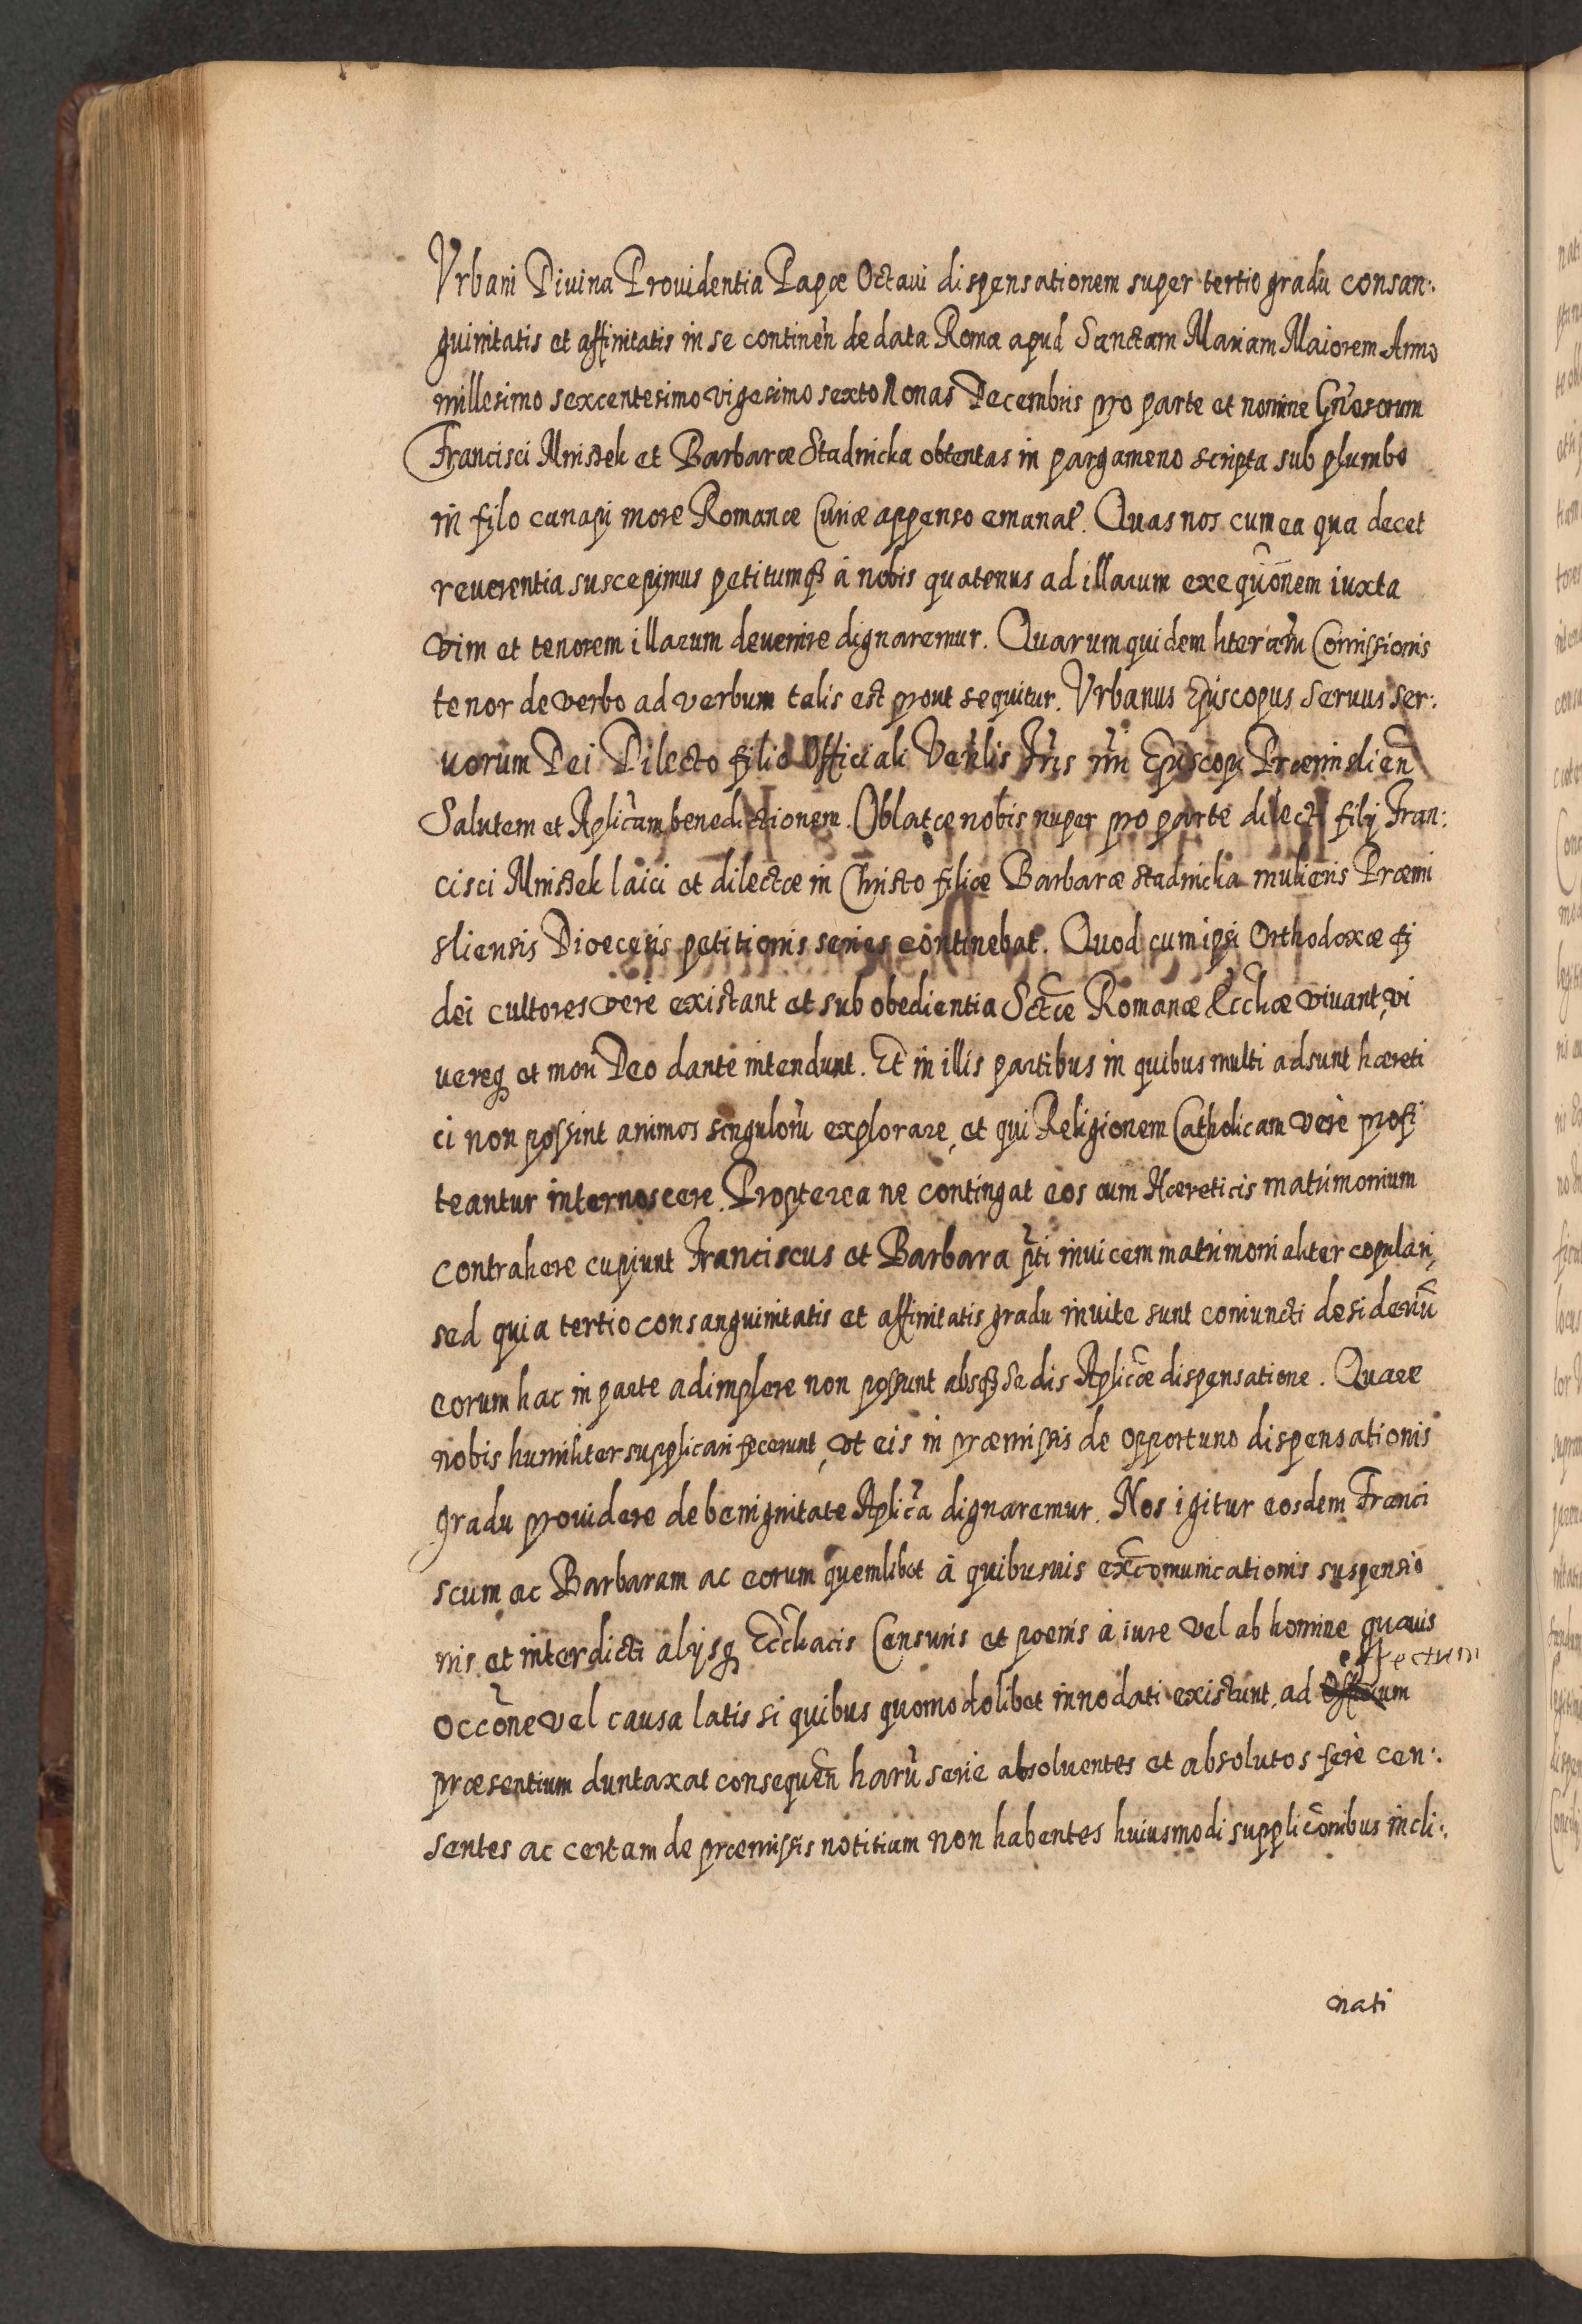 Vrbani Diuina Prouidentia Papæ Octaui dispensationem super tertio gradu consan:
guinitatis et affinitatis in se continen̄ de data Romæ apud Sanctam Mariam Maiorem Anno
millesimo sexcentesimo vigesimo sexto Nonas Decembris pro parte et nomine Gn̄osorum
Francisci Mniszek et Barbaræ Stadnicka obtentas in pargameno scripta sub plumbo
in filo canapi more Romanæ Curiæ appenso emanat̄. Quas nos cum ea qua decet
reuerentia suscepimus petitumqȝ à nobis quatenus ad illarum exequōnem iuxta
vim et tenorem illarum deuenire dignaremur. Quarum quidem literarū Com̄issionis
tenor de verbo ad verbum talis est prout sequitur. Vrbanus Episcopus Seruus Ser:
uorum Dei Dilecto filio Officiali Ven̄lis Fr̄is nr̄i Episcopi Præmislien̄
Salutem et Aplicam̄ benedictionem. Oblatæ nobis nuper pro parte dilecti filij Fran:
cisci Mniszek laici et dilectæ in Christo filiæ Barbaræ Stadnicka mulieris Præmi
sliensis Dioecesis petitionis series continebat. Quod cum ipsi Orthodoxæ fi
dei cultores vere existant et sub obedientia Sctǣ Romanæ Ecchæ viuant, vi
uereqȝ et mori Deo dante intendunt. Et in illis partibus in quibus multi adsunt hæreti
ci non possint animos singulorū explorare, et qui Religionem Catholicam verè profi
teantur internoscere. Propterea ne contingat eos cum Hæreticis matrimonium
contrahere cupiunt Franciscus et Barbara p̄ti inuicem matrimonialiter copulari,
sed quia tertio consanguinitatis et affinitatis gradu inuite sunt coniuncti desideriū
eorum hac in parte adimplere non possunt absqȝ Sedis Aplicǣ dispensatione. Quare
nobis humiliter supplicari fecerunt, vt eis in præmissis de opportuno dispensationis
gradu prouidere de benignitate Aplicā dignaremur. Nos igitur eosdem Franci
scum ac Barbaram ac eorum quemlibet à quibusuis excōmunicationis suspensio
nis et interdicti alijsqȝ Ecchacis Censuris et poenis à iure vel ab homine quauis
effectum
occōne vel causa latis si quibus quomodolibet innodati existunt, ad um
præsentium duntaxat consequen̄ harū serie absoluentes et absolutos fere cen:
sentes ac certam de præmissis notitiam non habentes huiusmodi supplicōnibus incli:
nati